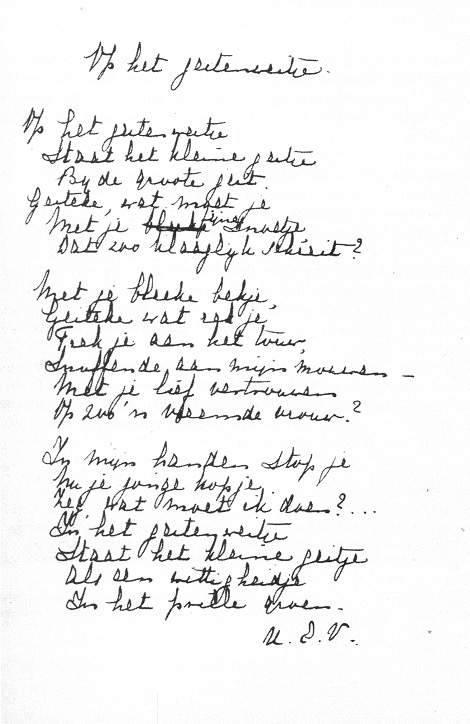 Op het geitenweitje.
Op het geitenweitje
Staat het kleine geitje
By de groote geit.
Geiteke, wat moet je
Met je fijne snoetje
Dat zoo klaaglyk schreit?
Met je bleeke bekje,
Geiteke wat rek je,
Trek je aan het touw,
Snuffende aan mijn mouwen –
Met je lief vertrouwen
Op zoo'n vreemde vrouw?
In mijn handen stop je
Nu je jonge kopje,
Zeg, wat moet ik doen?...
In het geitenweitje
Staat het kleine geitje
Als een wittigheidje
In het prille groen.